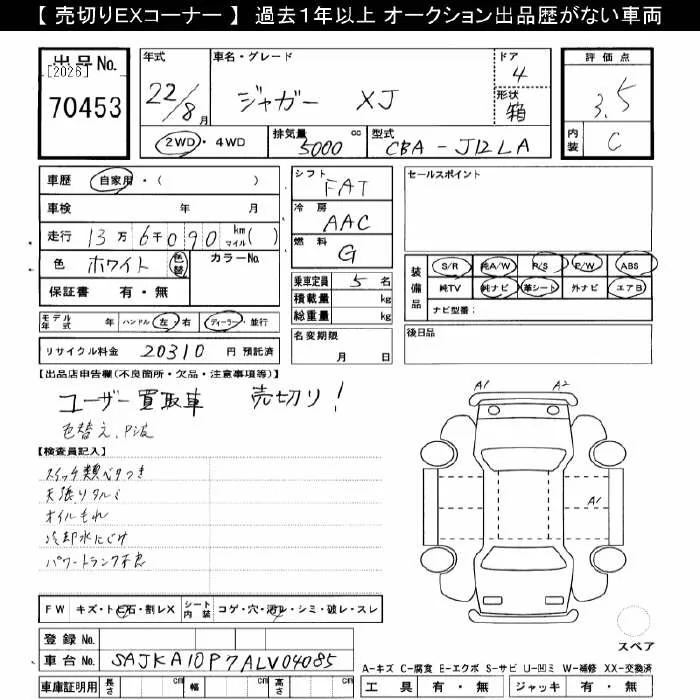 【 売切りEXコーナー 】 過去１年以上 オークション出品歴がない車両
出品No.
[2026]
70453
年式
22/8月
車名・グレード
ジャガー XJ
ドア
4
形状
箱
評価点
3.5
内装
C
2WD・4WD
排気量
5000 cc
型式
CBA - J12LA
車歴 自家用・( )
車検 年 月
走行 13万6千090 km マイル ( )
色 ホワイト 色替 カラーNo.
保証書 有・無
シフト
FAT
冷房
AAC
燃料
G
乗車定員 5 名
積載量 kg
総重量 kg
名変期限
月 日
セールスポイント
装備品
S/R 純A/W P/S P/W ABS
純TV 純ナビ 革シート 外ナビ エアB
ナビ型番：
後日品
モデル年式 年 ハンドル 左・右 ディーラー・並行
リサイクル料金 20310 円 預託済
【出品店申告欄(不良箇所・欠品・注意事項等)】
ユーザー買取車 売切り！
色替え、
【検査員記入】
スイッチ類ベタつき
天張りタルミ
オイルもれ
冷却水にごり
パワートランク不良
A1
A2
A1
FW キズ・ト石・割レX シート内装 コゲ・穴・汚レ・シミ・破レ・スレ
登録 No.
車台 No. SAJKA10P7ALV04085
車庫証明用 長さ cm 幅 cm 高さ cm
スペア
A-キズ C-腐食 E-エクボ S-サビ U-凹ミ W-補修 XX-交換済
工具 有・無 ジャッキ 有・無